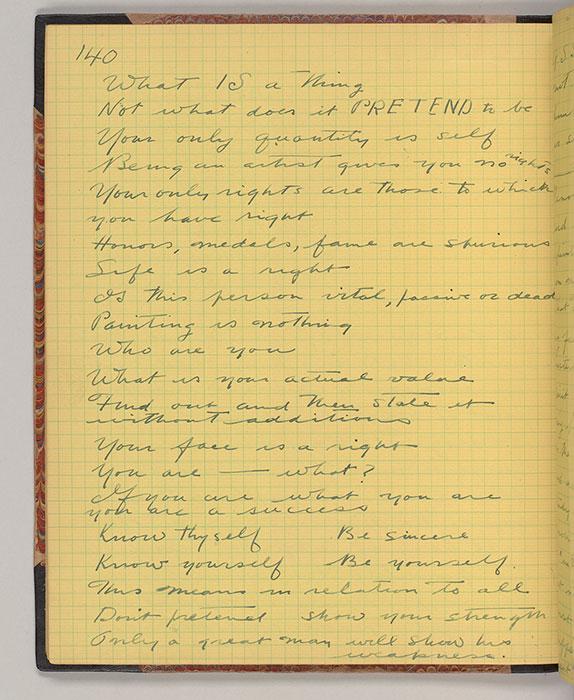 140
What IS a Thing
Not what does it PRETEND to be
Your only quantity is self
Being an artist gives you no rights
Your only rights are those to which
you have right
Honors, medals, fame are spurious
Life is a right
Is this person vital, passive or dead
Painting is nothing
Who are you
What is your actual value
Find out and then state it
without additions
Your face is a right
You are — what?
If you are what you are
you are a success
Know thyself Be sincere
Know yourself Be yourself.
This means in relation to all
Dont pretend show your strength
Only a great man will show his
weakness.